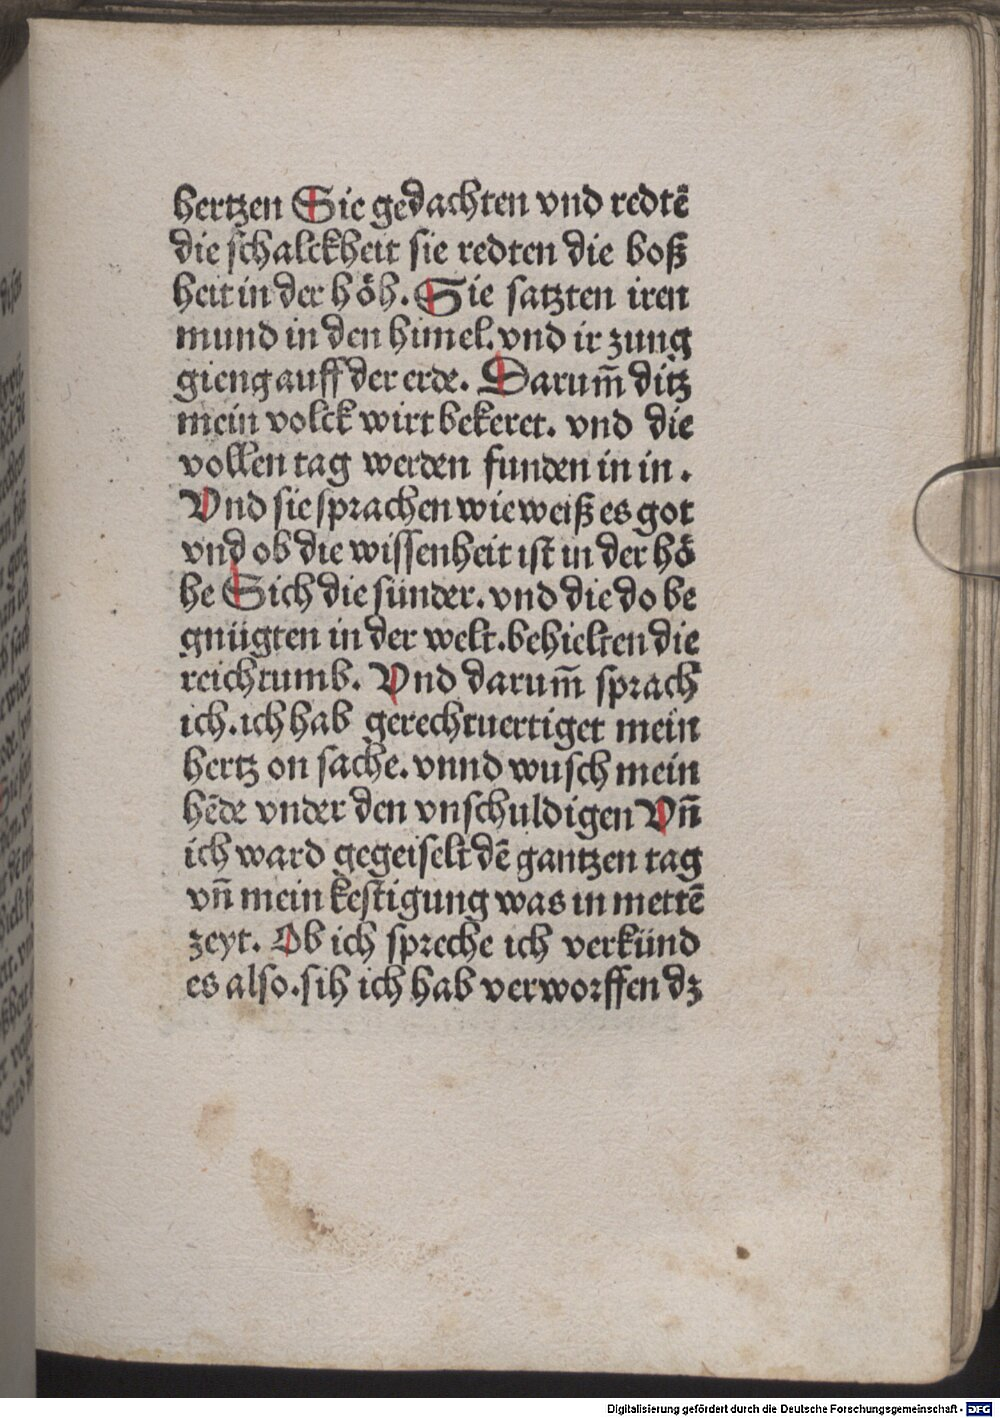 hertzen Sie gedachten vnd redtē
die schalckheit sie redten die boß
heit in der höh. Sie satzten iren
mund in den himel. vnd ir zung
gieng auff der erde. Darum̄ ditz
mein volck wirt bekeret. vnd die
vollen tag werden funden in in.
Vnd sie sprachen wie weiß es got
vnd ob die wissenheit ist in der hö
he Sich die sünder. vnd die do be
gnügten in der welt. behielten die
reichtumb. Vnd darum̄ sprach
ich. ich hab gerechtuertiget mein
hertz on sache. vnnd wusch mein
hēde vnder den vnschuldigen Vn̄
ich ward gegeiselt dē gantzen tag
vn̄ mein kestigung was in mettē
zeyt. Ob ich spreche ich verkünd
es also. sih ich hab verworffen dz
Digitalisierung gefördert durch die Deutsche Forschungsgemeinschaft - DFG